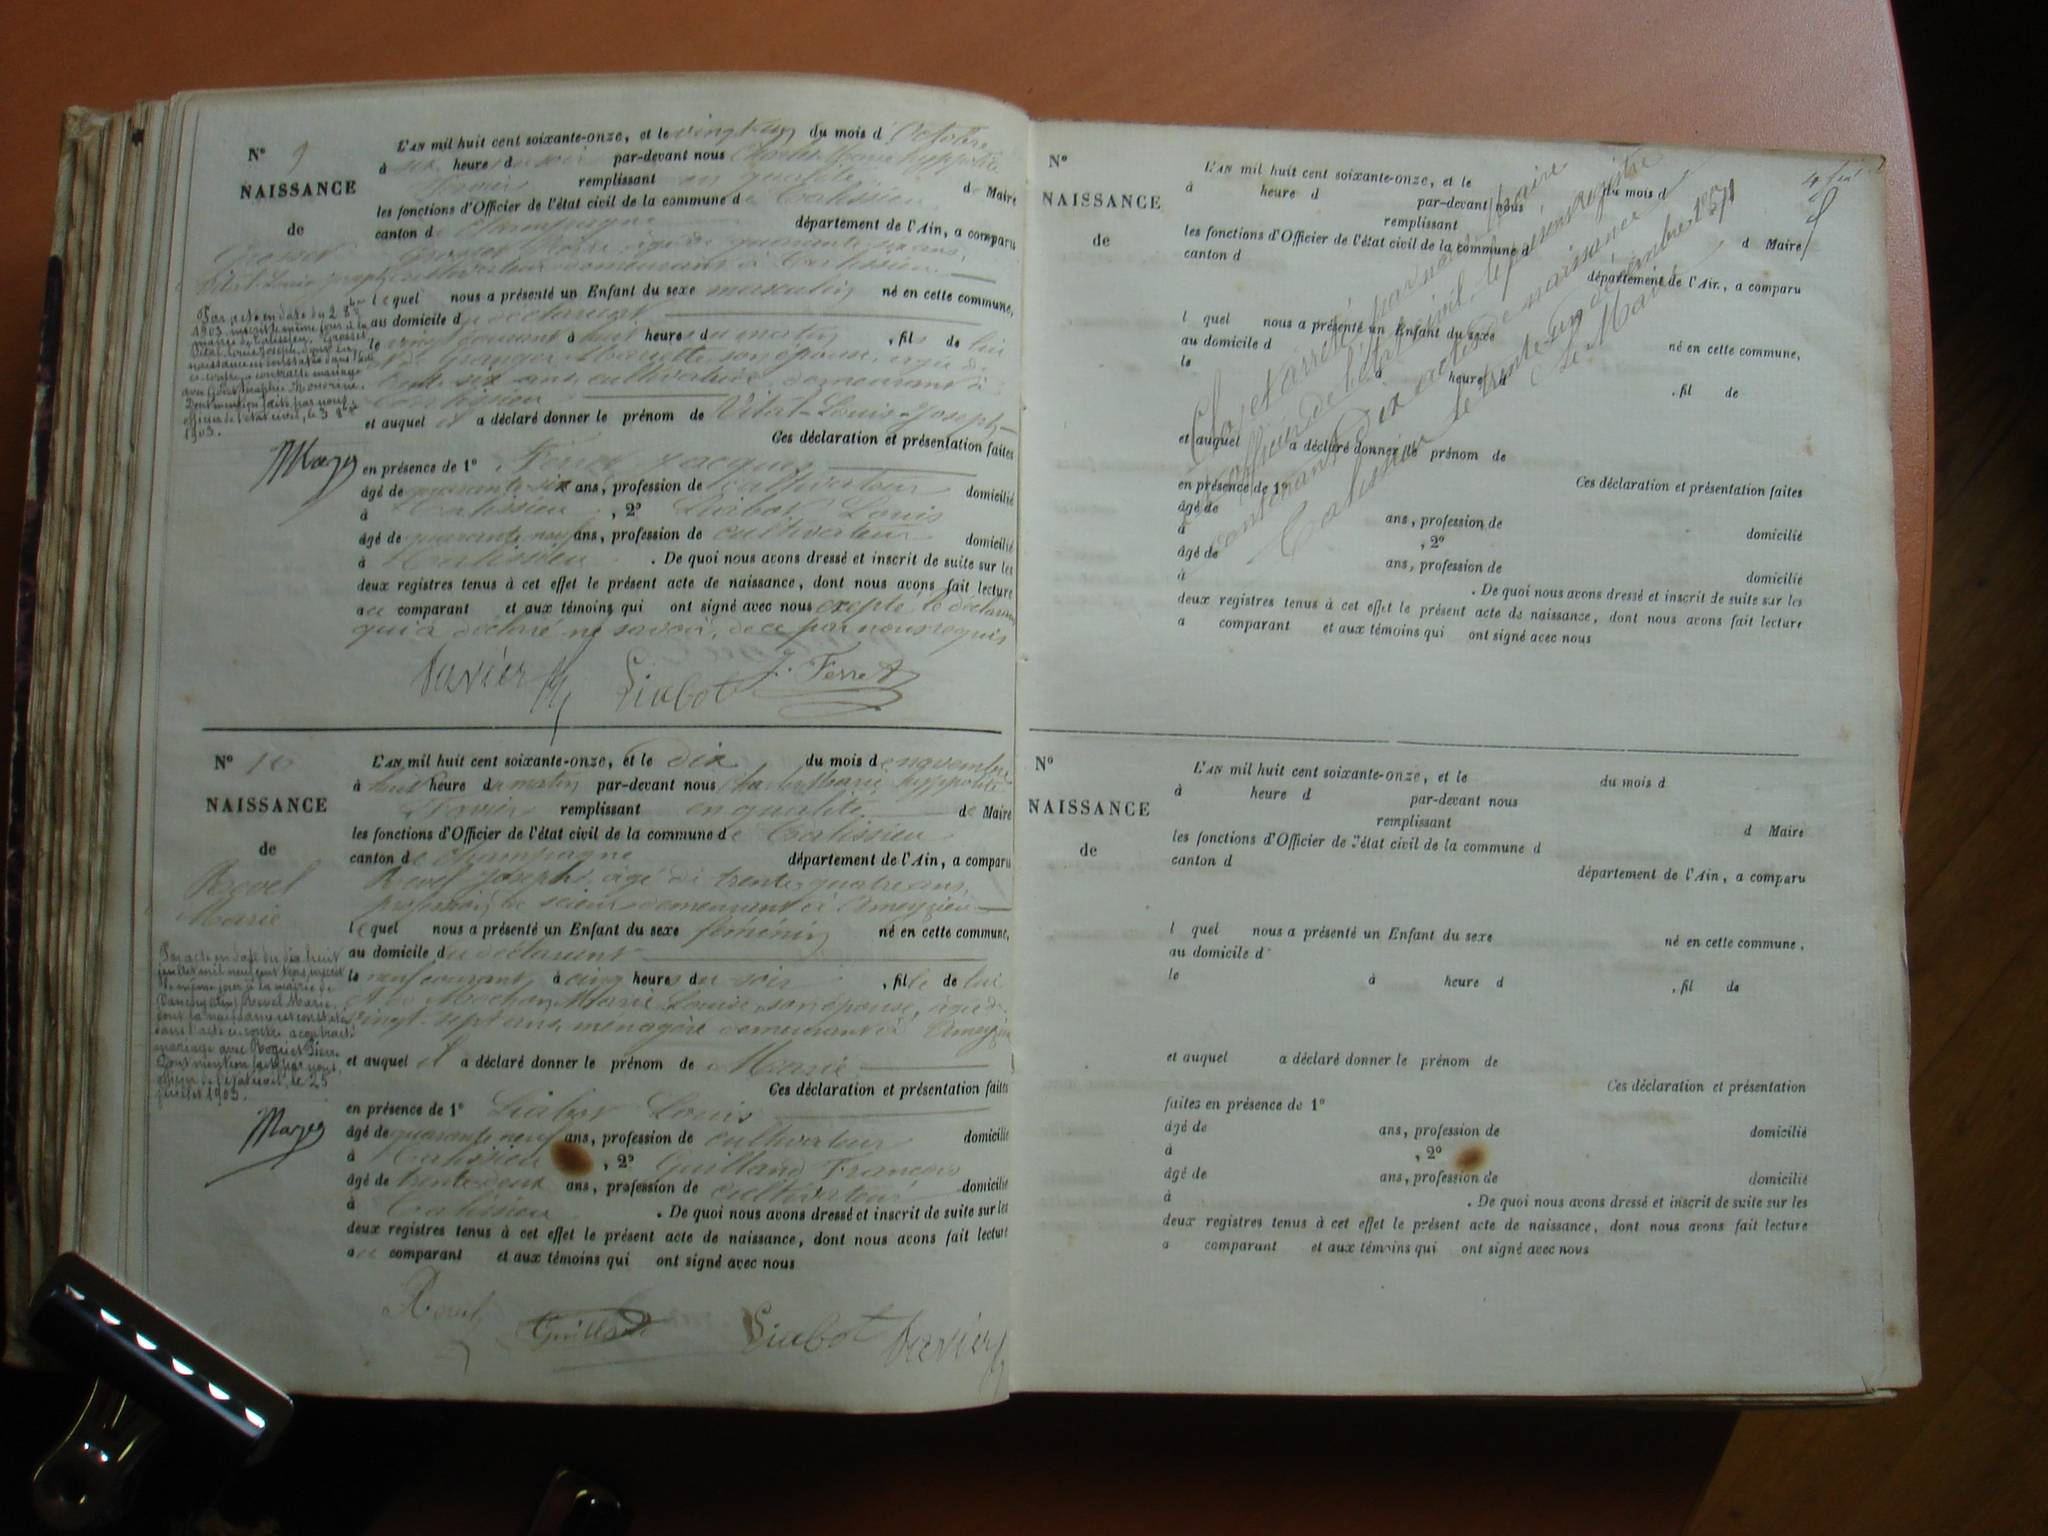 N° 9
NAISSANCE
de
Grosset
Vital Louis Joseph
Par acte en date du 2 8bre
1903, inscrit le même jour à la
mairie de Talissieu, Grosset
Vital Louis Joseph, dont la
naissance est constatée dans l'acte
ci-contre, a contracté mariage
avec
Dont mention faite par nous,
officier de l'état civil, le 3 8bre
1903.
L'AN mil huit cent soixante-onze, et le vingt un du mois d'Octobre
à six heure du soir par-devant nous Charles Marie hyppolite
remplissant en qualité de Maire
les fonctions d'Officier de l'état civil de la commune de Talissieu
canton de Champagne département de l'Ain, a comparu
Grosset âgé de quarante six ans,
cultivateur demeurant à Talissieu
lequel nous a présenté un Enfant du sexe masculin né en cette commune,
au domicile du déclarant
le vingt courant à huit heures du matin, fils de lui
et de Granger Mariette, son épouse, agée de
trente six ans, cultivatrice demeurant à
Talissieu
et auquel il a déclaré donner le prénom de Vital-Louis-Joseph
Ces déclaration et présentation faites
en présence de 1° Ferret Jacques
âgé de quarante six ans, profession de cultivateur domicilié
à Talissieu, 2° Liabot Louis
âgé de quarante neuf ans, profession de cultivateur domicilié
à Talissieu. De quoi nous avons dressé et inscrit de suite sur les
deux registres tenus à cet effet le présent acte de naissance, dont nous avons fait lecture
au comparant et aux témoins qui ont signé avec nous excepté le déclarant
qui a déclaré ne savoir, de ce par nous requis
Liabot J. Ferret
N° 10
NAISSANCE
de
Revel
Marie
Par acte en date du dix huit
juillet mil neuf cent trois, inscrit
le même jour à la mairie de
Revel Marie,
dont la naissance est constatée
dans l'acte ci-contre a contracté
mariage avec
Dont mention faite par nous,
officier de l'état civil, le 25
juillet 1903.
L'AN mil huit cent soixante-onze, et le dix du mois de novembre
à huit heure du matin par-devant nous Charles Marie hyppolite
remplissant en qualité de Maire
les fonctions d'Officier de l'état civil de la commune de Talissieu
canton de Champagne département de l'Ain, a comparu
Revel Joseph, âgé de trente quatre ans,
profession de scieur demeurant à Ameyzieu
lequel nous a présenté un Enfant du sexe féminin né en cette commune,
au domicile du déclarant
le neuf courant à cinq heures du soir, fille de lui
et de Mochon Marie Louise son épouse, agée de
vingt-sept ans, ménagère demeurant à Ameyzieu
et auquel il a déclaré donner le prénom de Marie
Ces déclaration et présentation faites
en présence de 1° Liabot Louis
âgé de quarante neuf ans, profession de cultivateur domicilié
à Talissieu, 2° Guilland François
âgé de trente deux ans, profession de cultivateur domicilié
à Talissieu. De quoi nous avons dressé et inscrit de suite sur les
deux registres tenus à cet effet le présent acte de naissance, dont nous avons fait lecture
au comparant et aux témoins qui ont signé avec nous
Revel Guilland Liabot
N°
NAISSANCE
de
L'AN mil huit cent soixante-onze, et le du mois d
à heure d par-devant nous
remplissant
d Maire
les fonctions d'Officier de l'état civil de la commune d
canton d
département de l'Ain., a comparu
l quel nous a présenté un Enfant du sexe
né en cette commune,
au domicile d
le à heure d
, fil de
et auquel a déclaré donner le prénom de
Ces déclaration et présentation faites
en présence de 1°
âgé de ans, profession de
domicilié
à , 2°
âgé de ans, profession de
domicilié
à . De quoi nous avons dressé et inscrit de suite sur les
deux registres tenus à cet effet le présent acte de naissance, dont nous avons fait lecture
a comparant et aux témoins qui ont signé avec nous
Clos et arrêté par nous Maire
officier de l'état civil, le présent registre
contenant Dix actes de naissance
Talissieu le trente un décembre 1871
Le Maire
N°
NAISSANCE
de
L'AN mil huit cent soixante-onze, et le du mois d
à heure d par-devant nous
remplissant
d Maire
les fonctions d'Officier de l'état civil de la commune d
canton d
département de l'Ain, a comparu
l quel nous a présenté un Enfant du sexe
né en cette commune.
au domicile d
le à heure d , fil de
et auquel a déclaré donner le prénom de
Ces déclaration et présentation
faites en présence de 1°
âgé de ans, profession de domicilié
à , 2°
âgé de ans, profession de domicilié
à . De quoi nous avons dressé et inscrit de suite sur les
deux registres tenus à cet effet le présent acte de naissance, dont nous avons fait lecture
a comparant et aux témoins qui ont signé avec nous